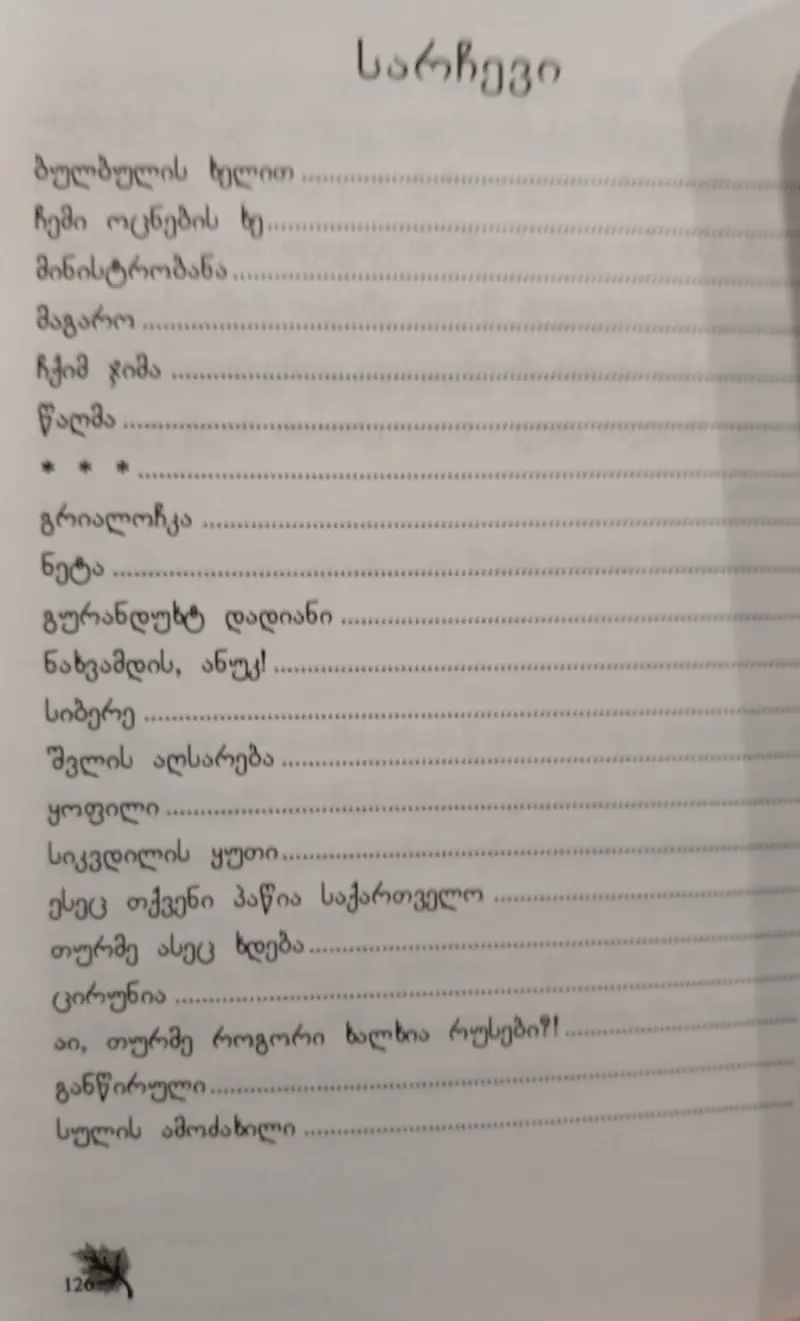 სარჩევი
ბულბულის ხელით
ჩემი ოცნების ხე
მინისტრობანა
მაგარო
ჩქიმ ჯიმა
წაღმა
* * *
გრიალოჩკა
ნეტა
გურანდუხტ დადიანი
ნახვამდის, ანუკ!
სიბერე
შვლის აღსარება
ყოფილი
სიკვდილის ყუთი
ესეც თქვენი პაწია საქართველო
თურმე ასეც ხდება
ცირუნია
აი, თურმე როგორი ხალხია რუსები?!
განწირული
სულის ამოძახილი
126